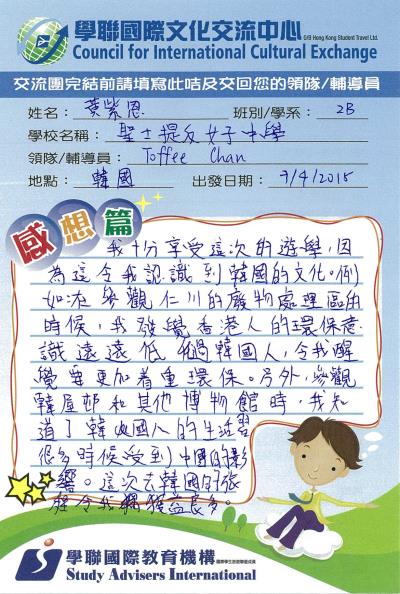 學聯國際文化交流中心 O/B Hong Kong Student Travel Ltd.
Council for International Cultural Exchange
交流團完結前請填寫此咭及交回您的領隊/輔導員
姓名：黃紫恩 班別/學系：2B
學校名稱：聖士提反女子中學
領隊/輔導員：Toffee Chan
地點：韓國 出發日期：9/4/2015
感想篇
我十分享受這次的遊學，因
為這令我認識到韓國的文化。例
如在參觀仁川的廢物處理區的
時候，我發覺香港人的環保意
識遠遠低過韓國人，令我醒
覺要更加着重環保。另外，參觀
韓屋邨和其他博物館時，我知
道了韓國人的生活習
很多時候受到中國的影
響。這次去韓國的旅
程令我獲益良多。
學聯國際教育機構
Study Advisers International